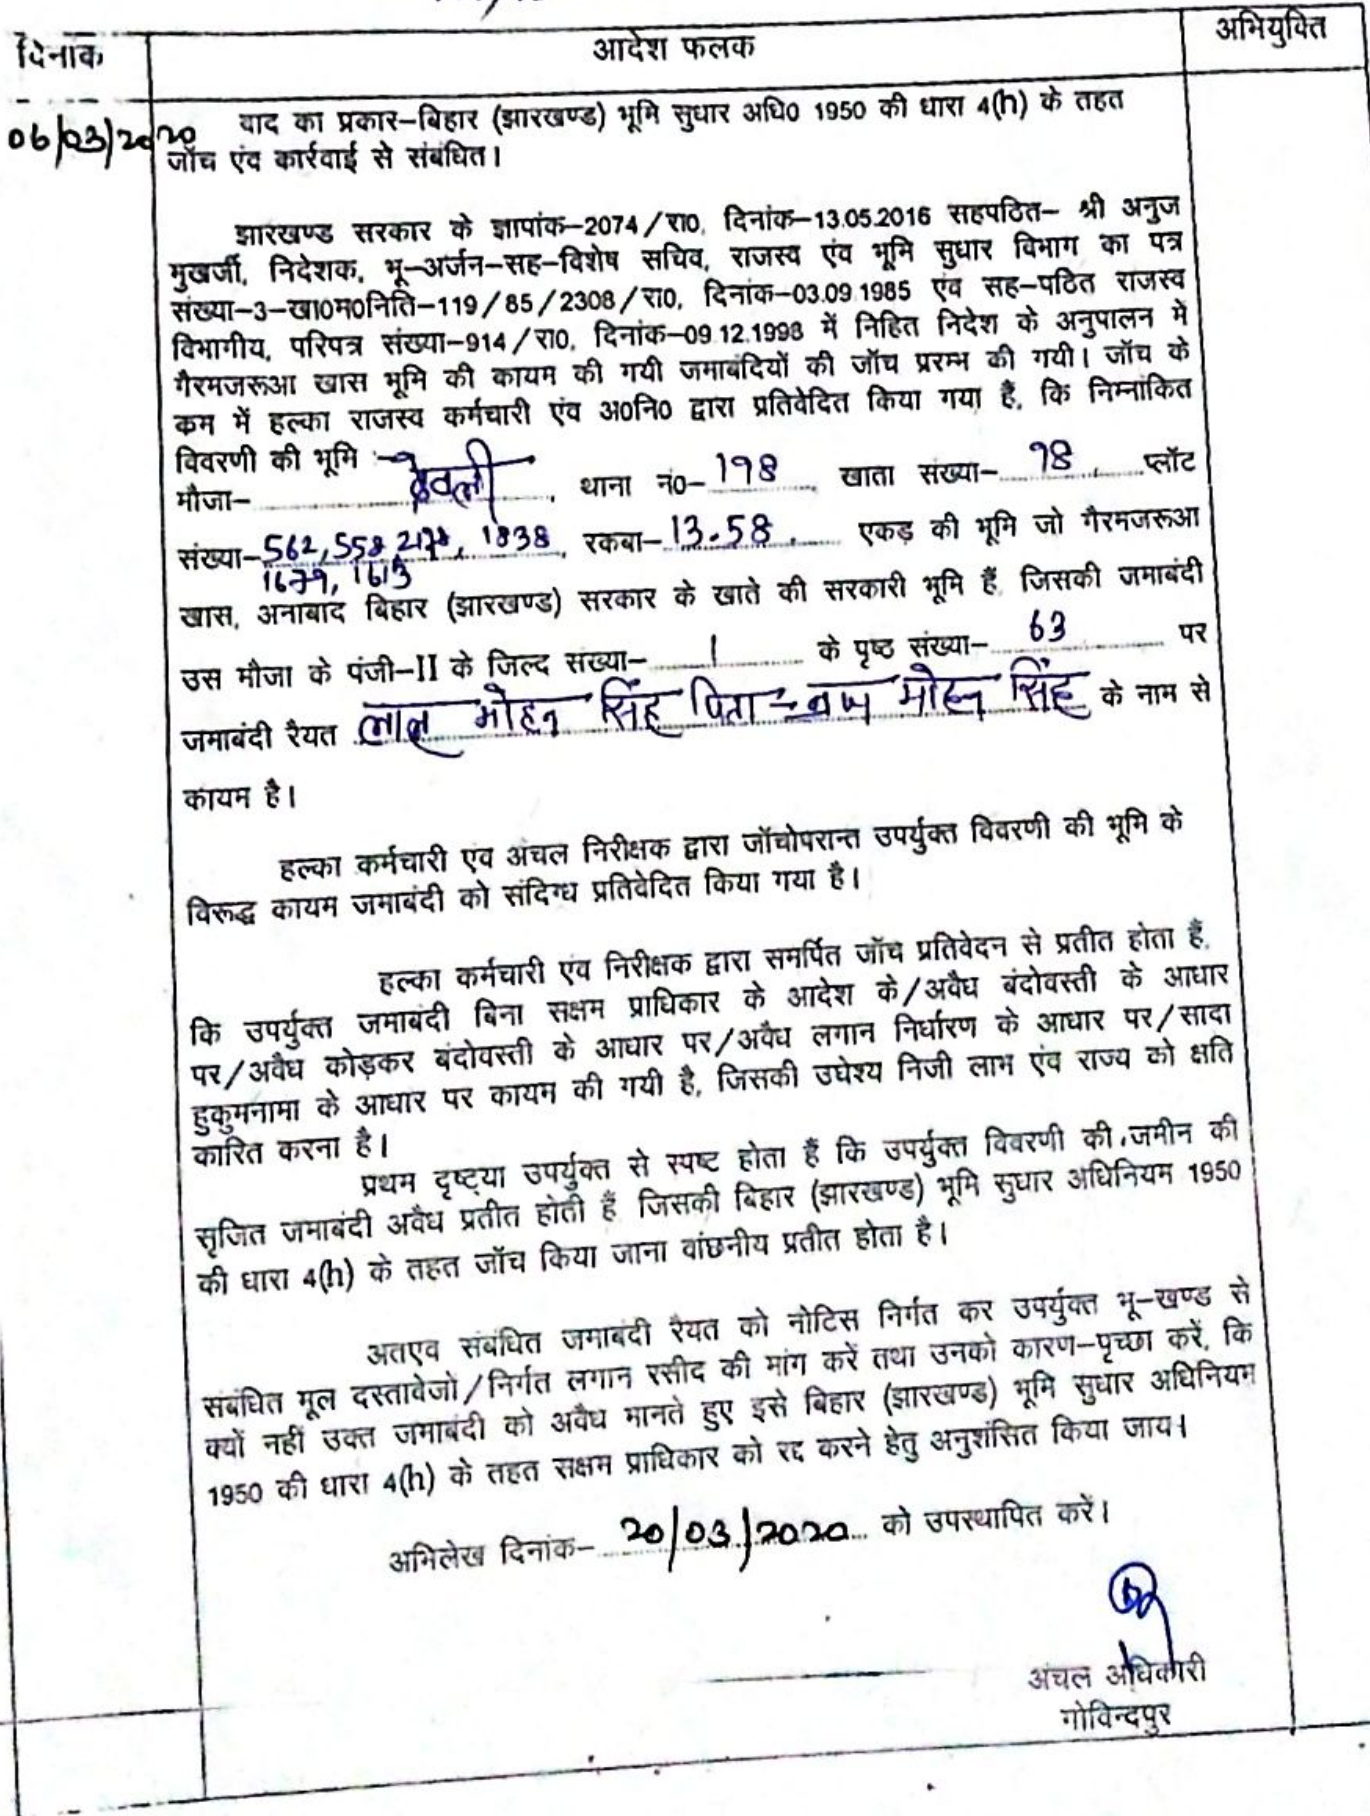 दिनांक
आदेश फलक
अभियुक्ति
06/03/2020
वाद का प्रकार–बिहार (झारखण्ड) भूमि सुधार अधि0 1950 की धारा 4(h) के तहत
जॉच एंव कार्रवाई से संबंधित।
झारखण्ड सरकार के ज्ञापांक–2074/रा0, दिनांक–13.05.2016 सहपठित– श्री अनुज
मुखर्जी, निदेशक, भू–अर्जन–सह–विशेष सचिव, राजस्व एंव भूमि सुधार विभाग का पत्र
संख्या–3–खा0म0निति–119/85/2308/रा0, दिनांक–03.09.1985 एंव सह–पठित राजस्व
विभागीय, परिपत्र संख्या–914/रा0, दिनांक–09.12.1998 में निहित निदेश के अनुपालन में
गैरमजरूआ खास भूमि की कायम की गयी जमाबंदियों की जॉच प्ररम्भ की गयी। जॉच के
कम में हल्का राजस्व कर्मचारी एंव अ0नि0 द्वारा प्रतिवेदित किया गया हैं, कि निम्नांकित
विवरणी की भूमि :–
मौजा– , थाना नं0– 198 , खाता संख्या– 98 , प्लॉट
संख्या– 562, 558, 2178, 1838 , रकबा– 13.58 , एकड़ की भूमि जो गैरमजरूआ
1679, 1613
खास, अनाबाद बिहार (झारखण्ड) सरकार के खाते की सरकारी भूमि हैं, जिसकी जमाबंदी
उस मौजा के पंजी–II के जिल्द संख्या– 1 के पृष्ठ संख्या– 63 पर
जमाबंदी रैयत लाल मोहन सिंह पिता – मोहन सिंह के नाम से
कायम है।
हल्का कर्मचारी एंव अंचल निरीक्षक द्वारा जॉचोपरान्त उपर्युक्त विवरणी की भूमि के
विरूद्ध कायम जमाबंदी को संदिग्ध प्रतिवेदित किया गया है।
हल्का कर्मचारी एंव निरीक्षक द्वारा समर्पित जॉच प्रतिवेदन से प्रतीत होता हैं,
कि उपर्युक्त जमाबंदी बिना सक्षम प्राधिकार के आदेश के/अवैध बंदोवस्ती के आधार
पर/अवैध कोड़कर बंदोवस्ती के आधार पर/अवैध लगान निर्धारण के आधार पर/सादा
हुकुमनामा के आधार पर कायम की गयी है, जिसकी उघेश्य निजी लाभ एंव राज्य को क्षति
कारित करना है।
प्रथम दृष्ट्या उपर्युक्त से स्पष्ट होता हैं कि उपर्युक्त विवरणी की जमीन की
सृजित जमाबंदी अवैध प्रतीत होती हैं, जिसकी बिहार (झारखण्ड) भूमि सुधार अधिनियम 1950
की धारा 4(h) के तहत जॉच किया जाना वांछनीय प्रतीत होता है।
अतएव संबंधित जमाबंदी रैयत को नोटिस निर्गत कर उपर्युक्त भू–खण्ड से
संबंधित मूल दस्तावेजो/निर्गत लगान रसीद की मांग करें तथा उनको कारण–पृच्छा करें, कि
क्यों नहीं उक्त जमाबंदी को अवैध मानते हुए इसे बिहार (झारखण्ड) भूमि सुधार अधिनियम
1950 की धारा 4(h) के तहत सक्षम प्राधिकार को रद्द करने हेतु अनुशंसित किया जाय।
अभिलेख दिनांक– 20/03/2020 को उपस्थापित करें।
अंचल अधिकारी
गोविन्दपुर